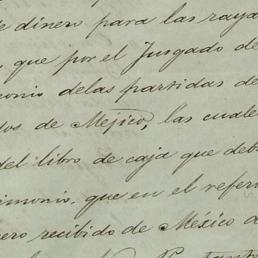 de dinero para las raya
que por el Jusgado de
monio delas partidas de
dos de Mejico, las cuale
del libro de caja que deb
rimonio, que en el referi
ero recibido de México d